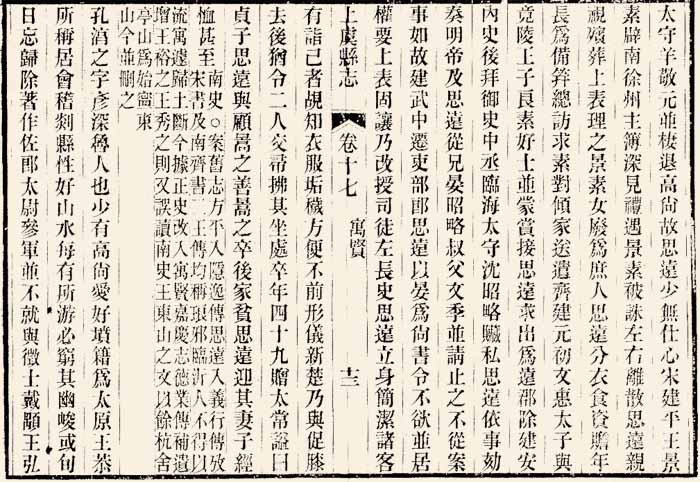 太守羊敬元並棲退高尚故思遠少無仕心宋建平王景
素辟南徐州主簿深見禮遇景素被誅左右離散思遠親
視殯葬上表理之景素女廢爲庶人思遠分衣食資贍年
長爲備笄總訪求素對傾家送遣齊建元初文惠太子與
竟陵王子良素好士並蒙賞接思遠求出爲遠郡除建安
內史後拜御史中丞臨海太守沈昭略贓私思遠依事劾
奏明帝及思遠從兄晏昭略叔父文季並請止之不從案
事如故建武中遷吏部郎思遠以晏爲尚書令不欲並居
權要上表固讓乃改授司徒左長史思遠立身簡潔諸客
上虞縣志 卷十七 寓賢 十三
有詣己者覘知衣服垢穢方便不前形儀新楚乃與促膝
去後猶令二人交帚拂其坐處卒年四十九贈太常諡曰
貞子思遠與顧暠之善暠之卒後家貧思遠迎其妻子經
恤甚至 南史○案舊志方平入隱逸傳思遠入義行傳攷
宋書及南齊書二王傳均稱琅邪臨沂人不得以
流寓遽歸土斷今據正史改入寓賢嘉慶志德業傳補遺
增王裕之王秀之則又誤讀南史王東山之文以餘杭舍
亭山爲始寧東
山今並刪之
孔淳之字彥深魯人也少有高尚愛好墳籍爲太原王恭
所稱居會稽剡縣性好山水每有所游必窮其幽峻或旬
日忘歸除著作佐郎太尉參軍並不就與徵士戴顒王弘